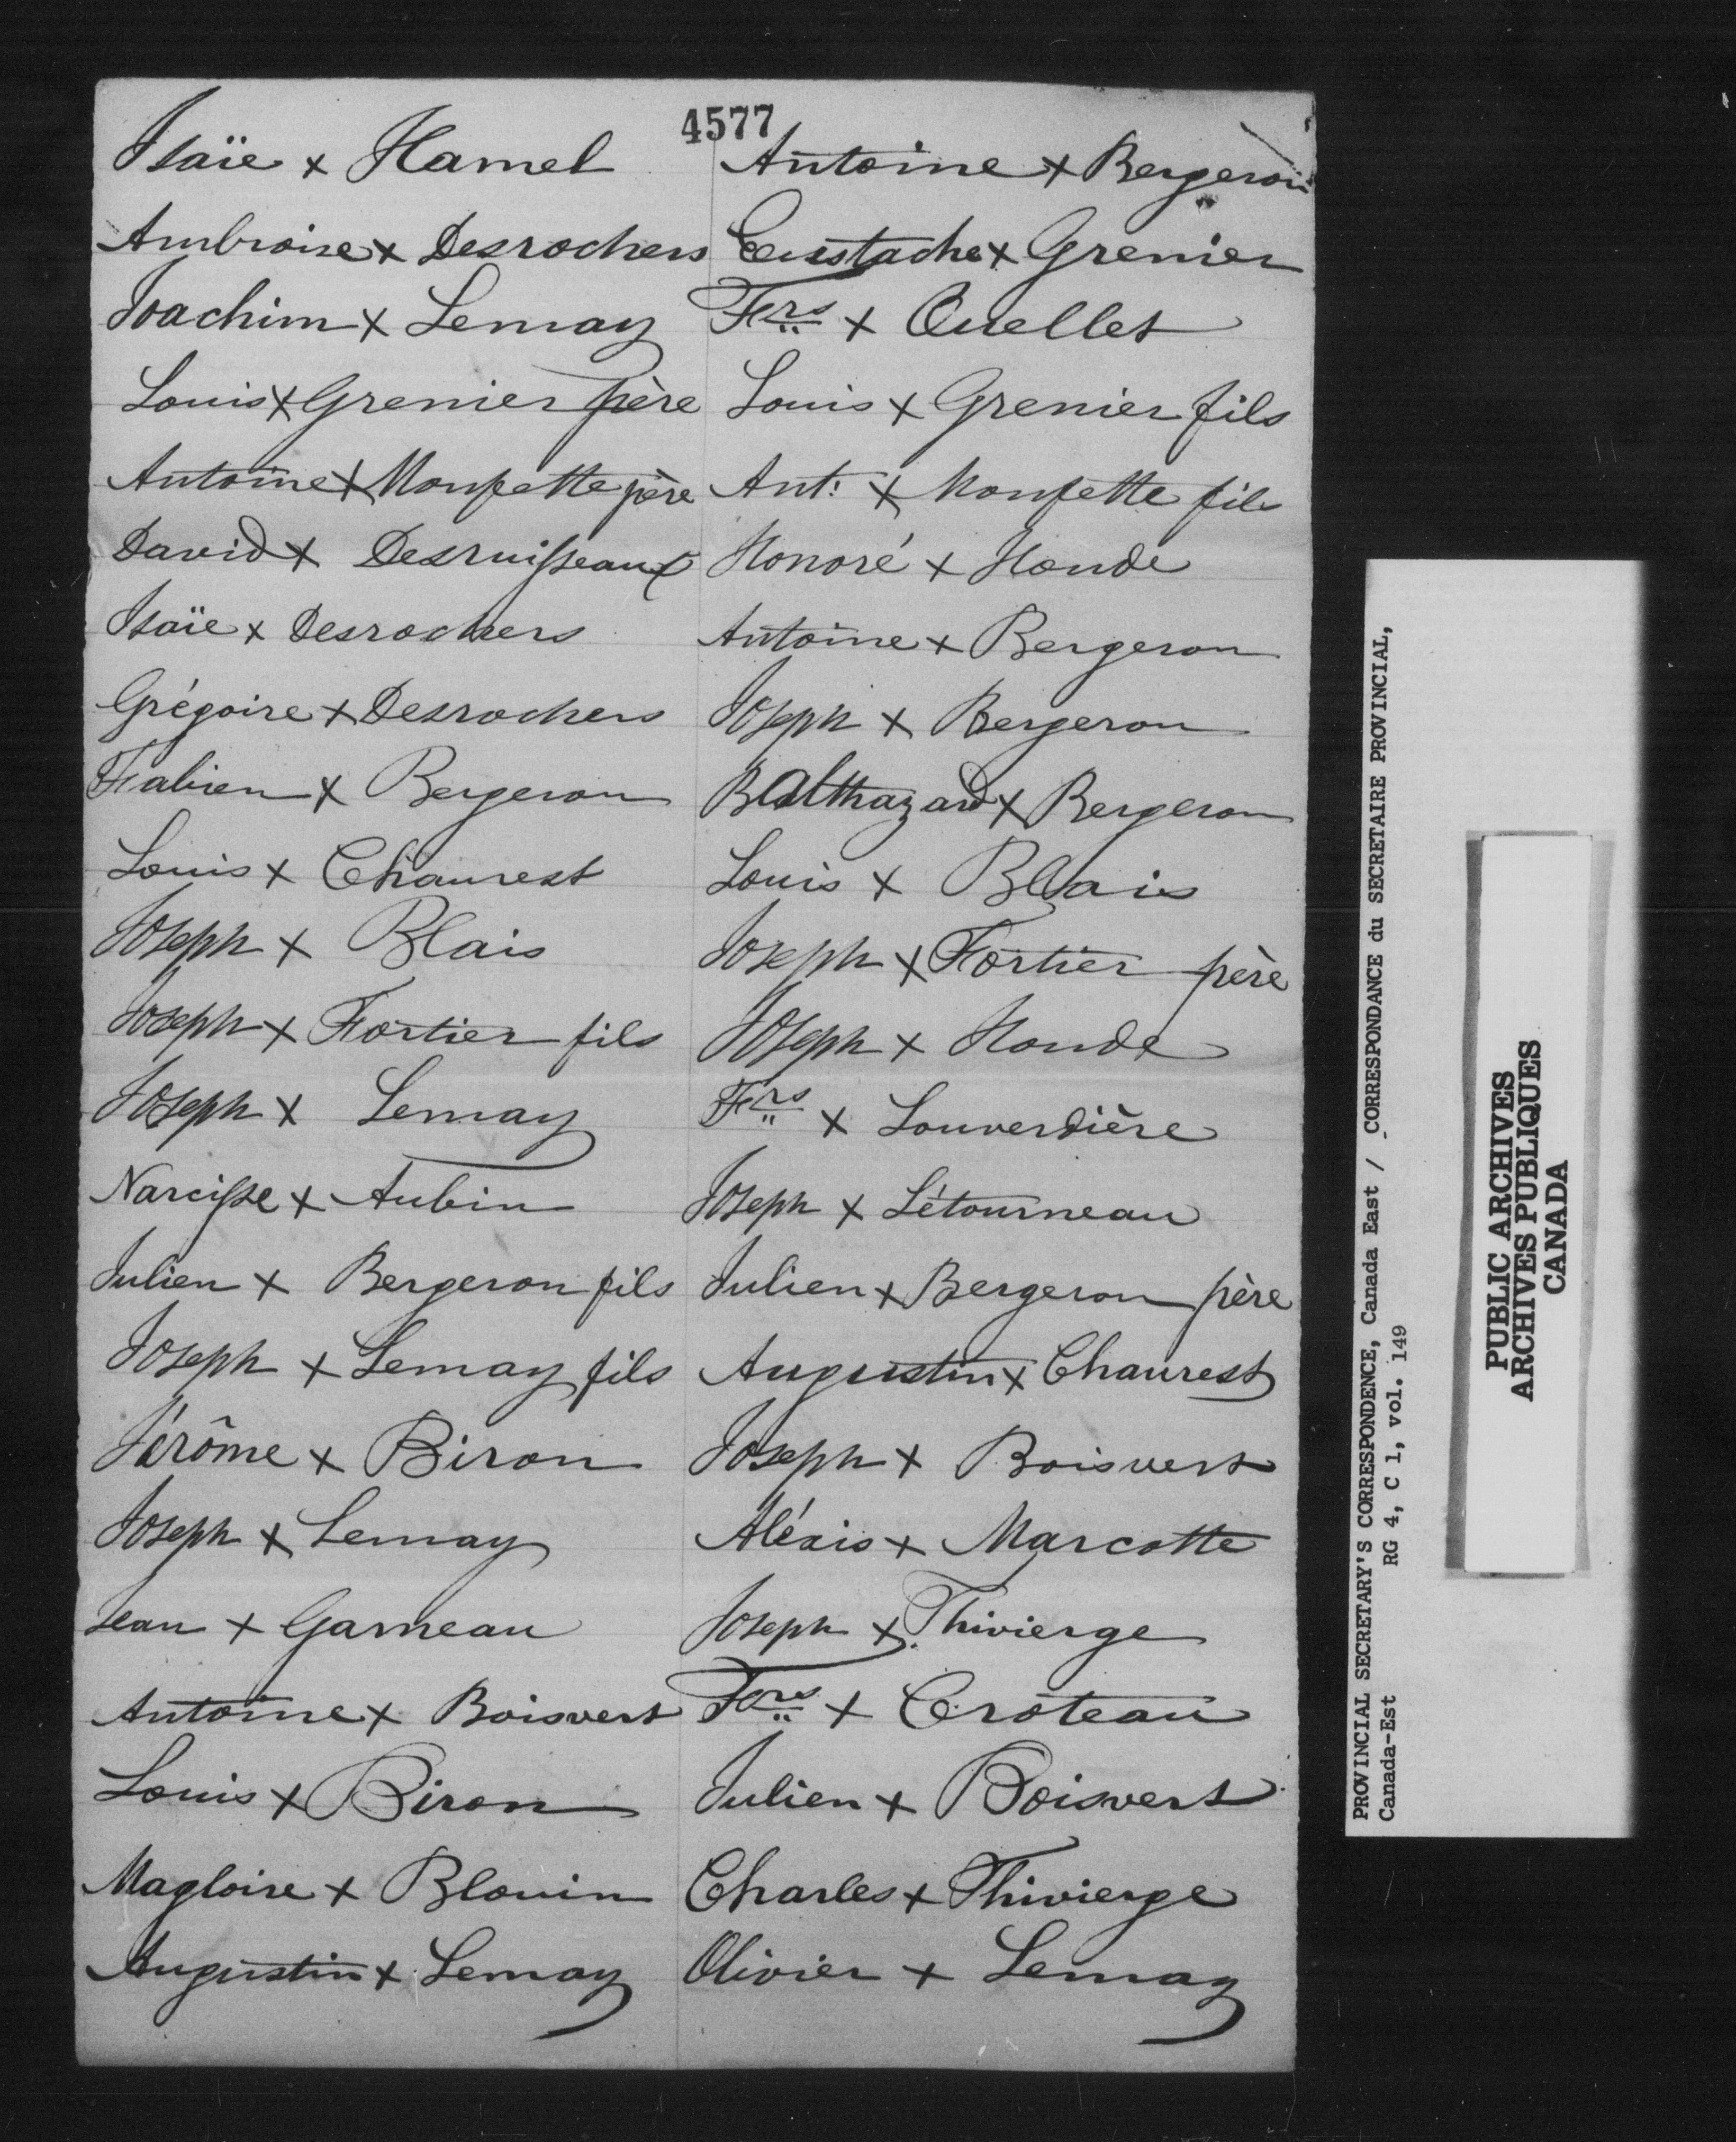 4577
Isaïe x Hamel Antoine x Bergeron
Ambroise x Desrochers Eustache x Grenier
Joachim x Lemay Frs x Ouellet
Louis x Grenier père Louis x Grenier fils
Antoine x Monfette père Ant: x Monfette fils
David x Desruisseaux Honoré x Houde
Isaïe x Desrochers Antoine x Bergeron
Grégoire x Desrochers Joseph x Bergeron
Fabien x Bergeron Balthazard x Bergeron
Louis x Chaurest Louis x Blais
Joseph x Blais Joseph x Fortier père
Joseph x Fortier fils Joseph x Houde
Joseph x Lemay Frs x Louverdière
Narcisse x Aubin Joseph x Létourneau
Julien x Bergeron fils Julien x Bergeron père
Joseph x Lemay fils Augustin x Chaurest
Jérôme x Biron Joseph x Boisvert
Joseph x Lemay Aléxis x Marcotte
Jean x Garneau Joseph x Thivierge
Antoine x Boisvert Frs x Croteau
Louis x Biron Julien x Boisvert
Magloire x Blouin Charles x Thivierge
Augustin x Lemay Olivier x Lemay
PROVINCIAL SECRETARY'S CORRESPONDENCE, Canada East / CORRESPONDANCE du SECRETAIRE PROVINCIAL,
Canada-Est RG 4, C 1, vol. 149
PUBLIC ARCHIVES
ARCHIVES PUBLIQUES
CANADA